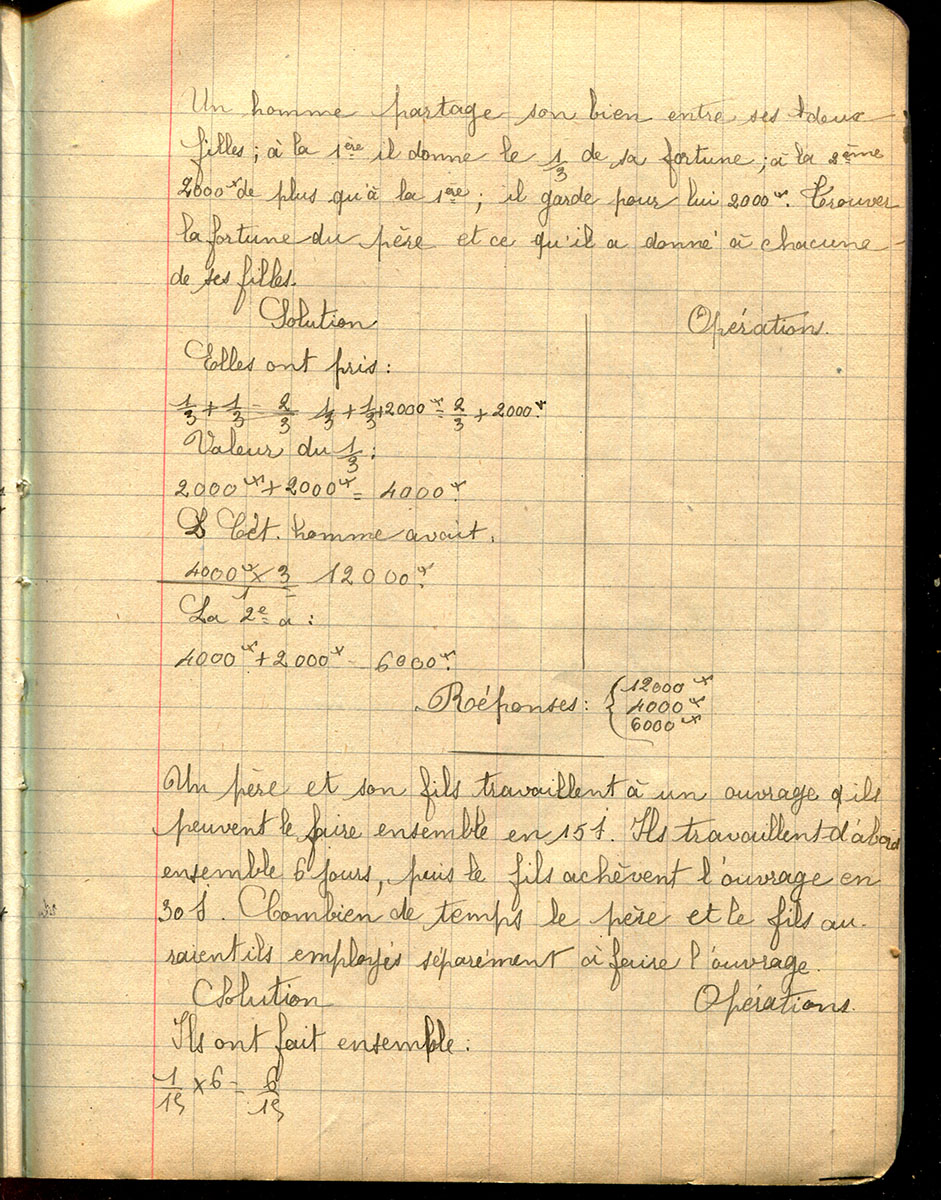 Un homme partage son bien entre ses deux
filles ; à la 1ère il donne le 1/3 de sa fortune ; à la 2ème
2000f de plus qu'à la 1ère ; il garde pour lui 2000f. Trouver
la fortune du père et ce qu'il a donné à chacune
de ses filles.
Solution Opération.
Elles ont pris :
1/3 + 1/3 = 2/3 1/3 + 1/3 + 2000f = 2/3 + 2000f.
Valeur du 1/3 :
2000f + 2000f = 4000f.
Cet. homme avait.
4000f x 3 / 1 = 12000f.
La 2e a :
4000f + 2000f = 6000f.
Réponses : { 12000f
4000f
6000f
Un père et son fils travaillent à un ouvrage q'ils
peuvent le faire ensemble en 15 J. Ils travaillent d'abord
ensemble 6 jours, puis le fils achèvent l'ouvrage en
30 J. Combien de temps le père et le fils au-
raient ils employés séparément à faire l'ouvrage.
Solution Opérations.
Ils ont fait ensemble :
1/15 x 6 = 6/15